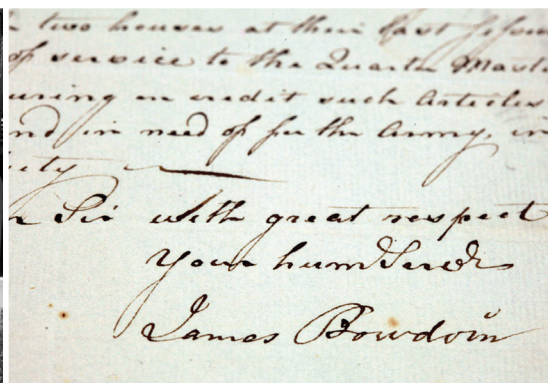 two houses at their last Session
of service to the Quarter Maste
uring on credit such Articles
nd in need of for the Army, in
iety
Sir with great respect
Your hum Servt
James Bowdoin